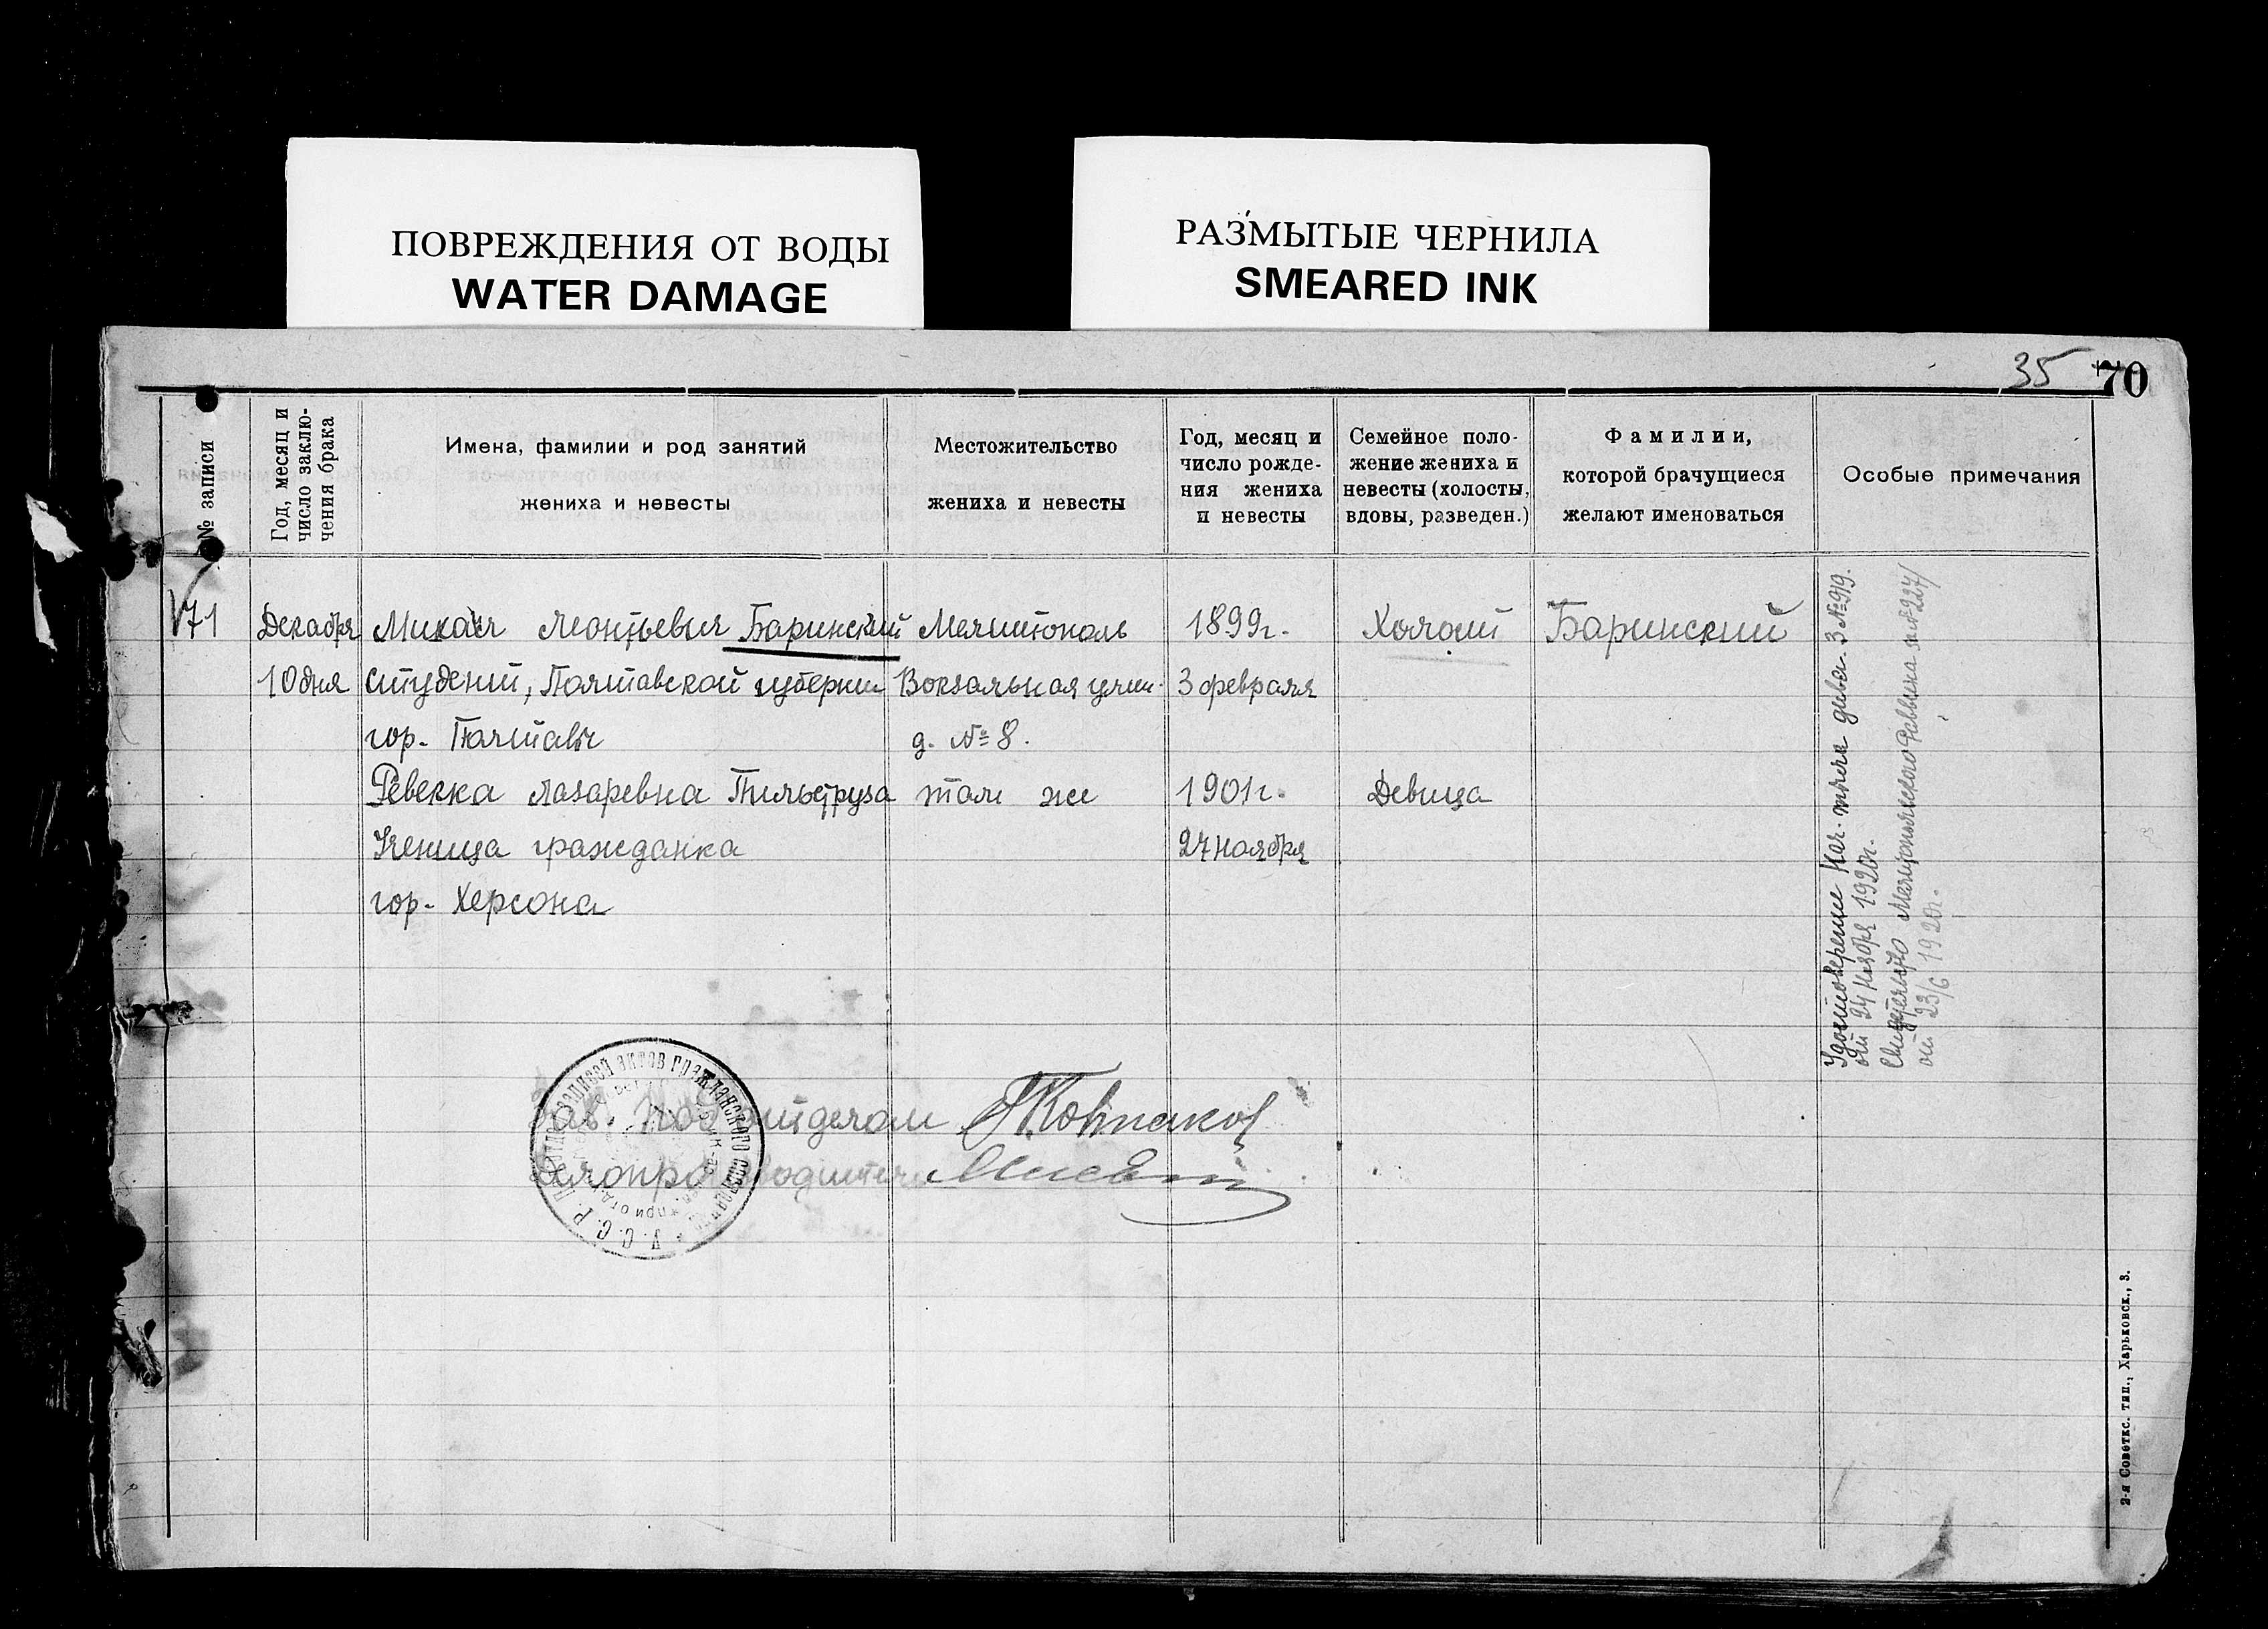 ПОВРЕЖДЕНИЯ ОТ ВОДЫ
WATER DAMAGE
РАЗМЫТЫЕ ЧЕРНИЛА
SMEARED INK
35 70
№ записи
Год, месяц и
число заклю-
чения брака
Имена, фамилии и род занятий
жениха и невесты
Местожительство
жениха и невесты
Год, месяц и
число рожде-
ния жениха
и невесты
Семейное поло-
жение жениха и
невесты (холосты,
вдовы, разведен.)
Фамилии,
которой брачущиеся
желают именоваться
Особые примечания
71
Декабря
10 дня
Михаил Леонтьевич Баринский
студент, Полтавской губернии
гор. Полтавы
Ревекка Лазаревна Тильеруза
Ученица гражданка
гор. Херсона
Мелитополь
Вокзальная улиц.
д. № 8.
там же
1899г.
3 февраля
1901г.
27 ноября
Холост
Девица
Баринский
Удостоверение Нач. дивы. 3 № 919.
от 24 Ноября 1920г.
Свидетельство Мелитопольского Раввина за № 227/
от 23/6 1920г.
Зав. Подотделом
Делопроизводитель
У.С.С.Р. записей актов гражданского состояния
при отд
2-я Советкс. тип., Харьковск., 3.